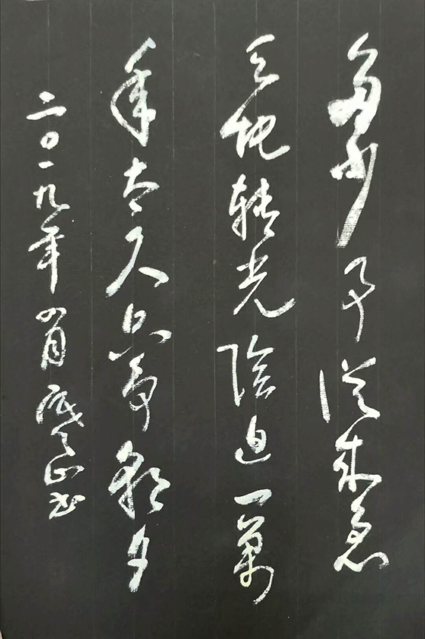 多少事从来急
天地转光阴迫一万
年太久只争朝夕
二0一九年